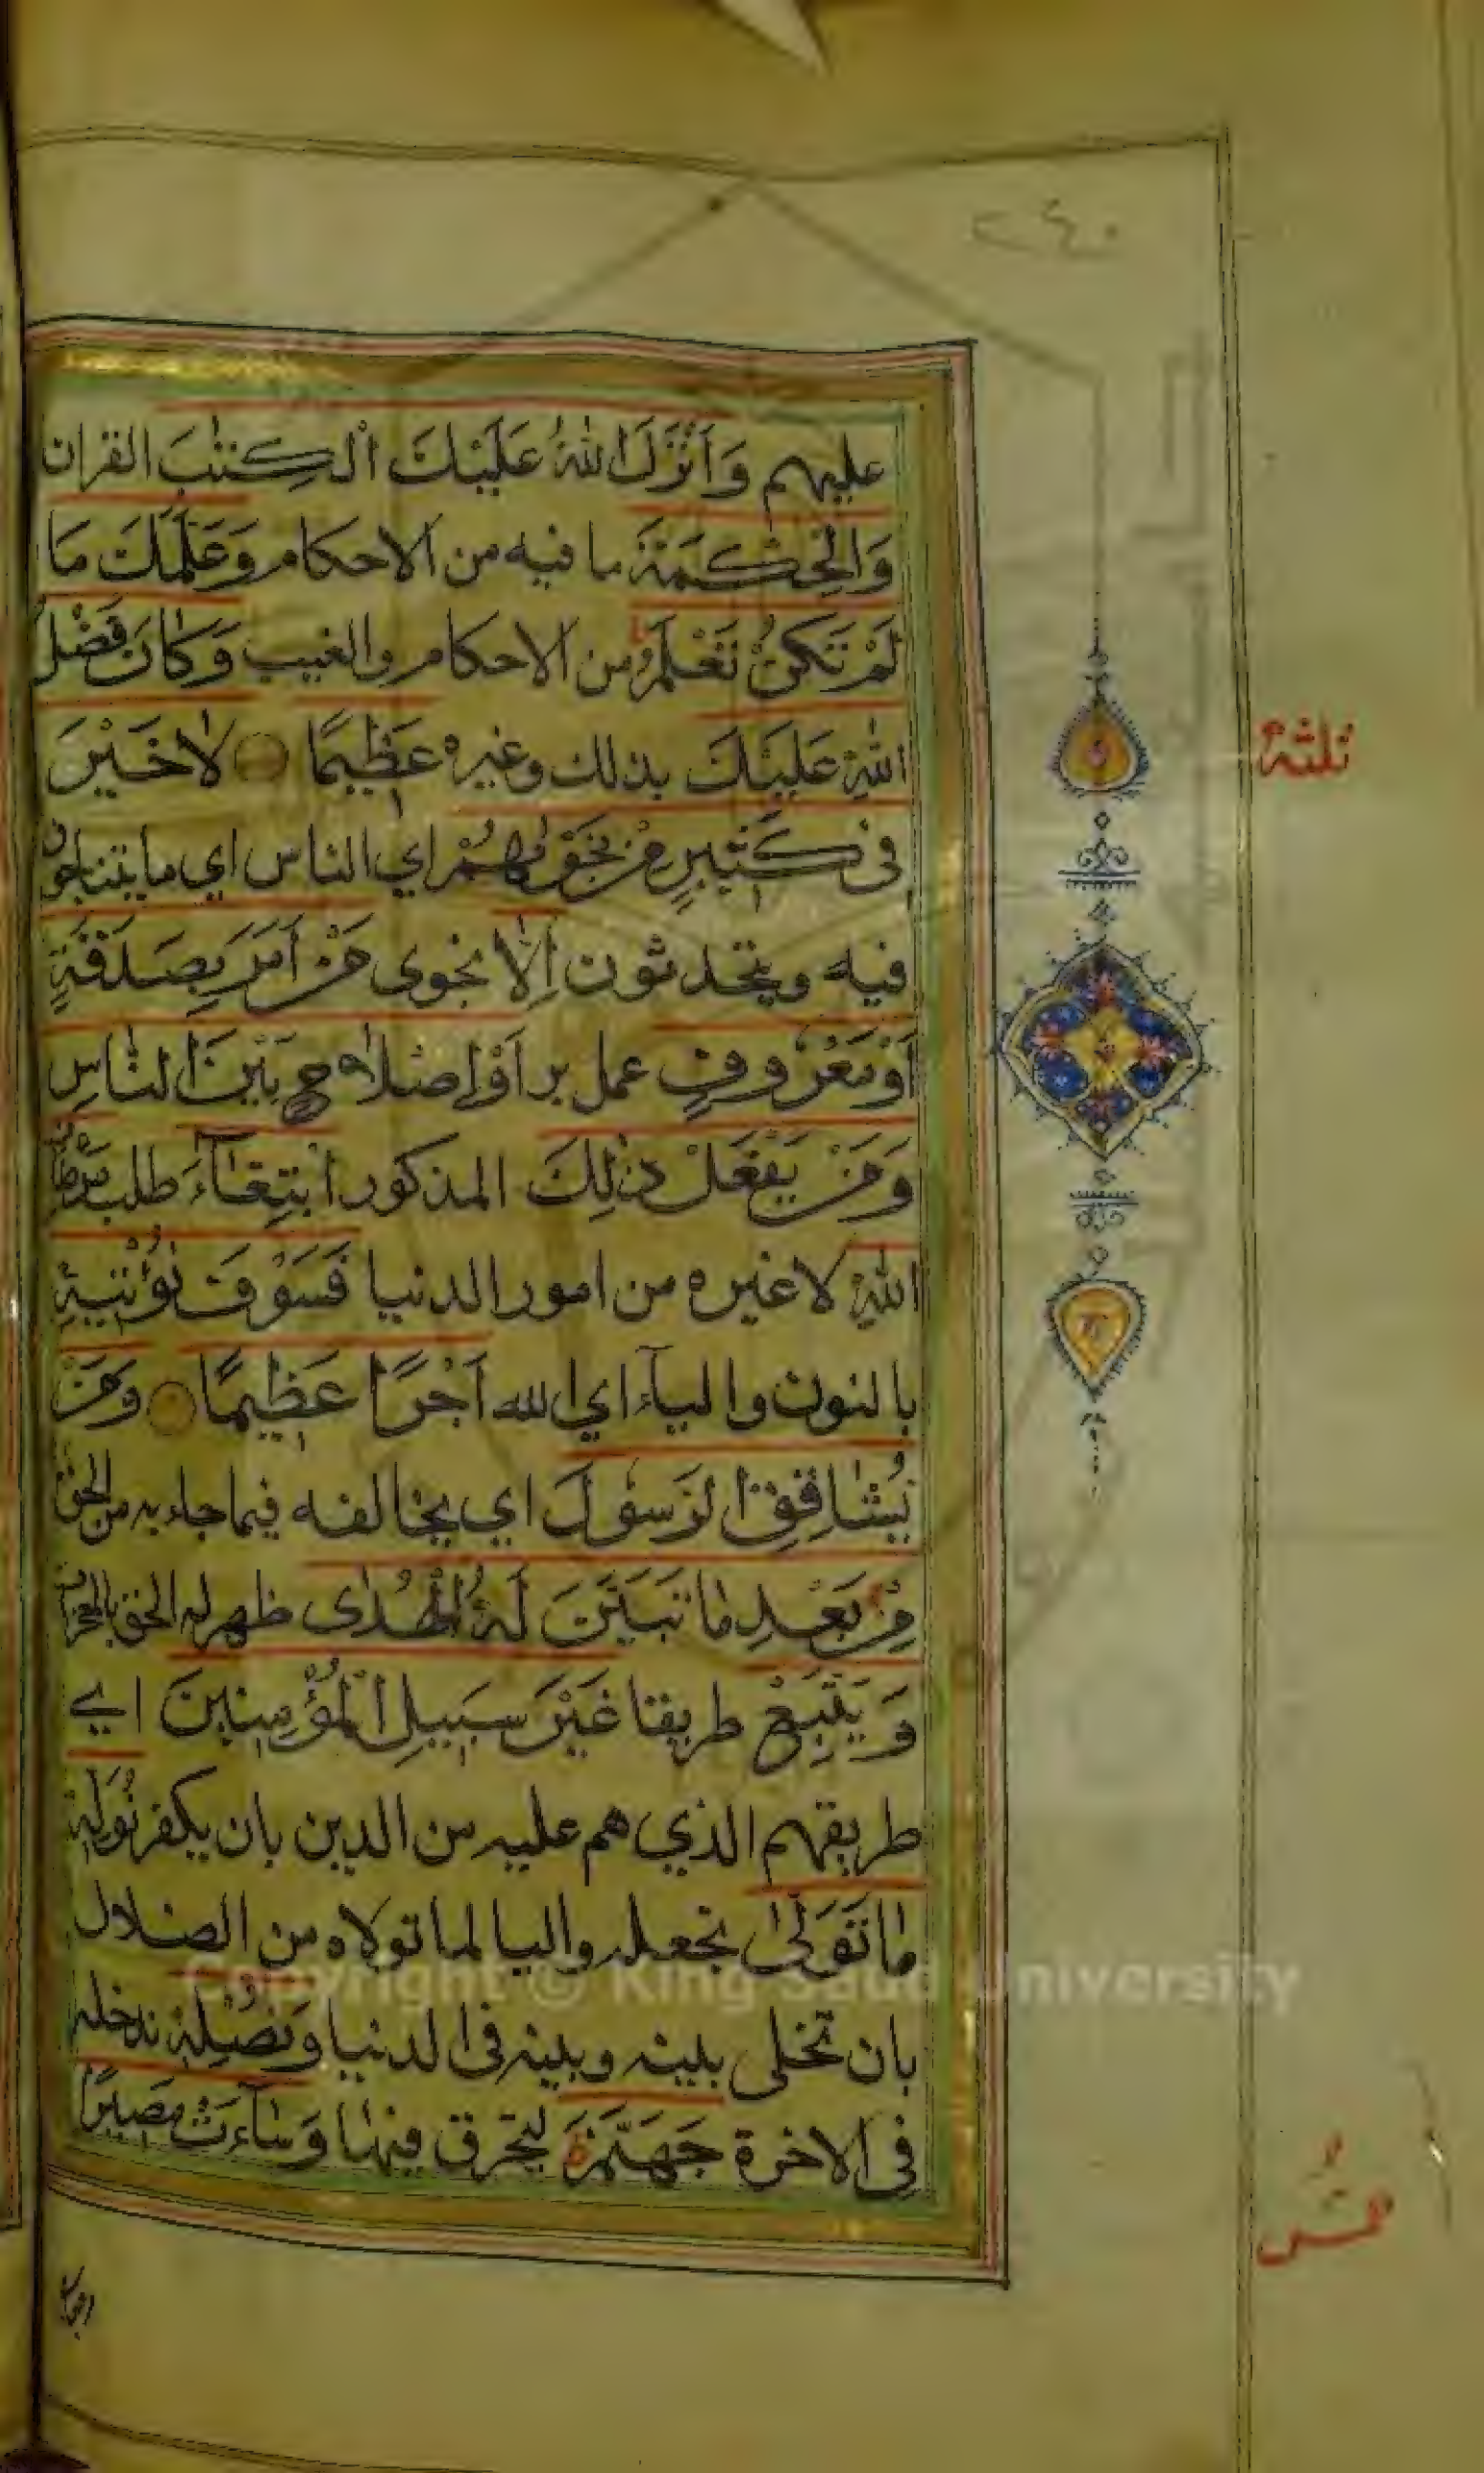 ٢٤٠
عليهم وَأَنْزَلَ اللهُ عَلَيْكَ الْكِتٰبَ القران
وَالْحِكْمَةَ ما فيه من الاحكام وَعَلَّمَكَ مَا
لَمْ تَكُنْ تَعْلَمُ من الاحكام والغيب وَكَانَ فَضْلُ
اللهِ عَلَيْكَ بذلك وغيره عَظِيمًا لَا خَيْرَ
فِى كَثِيرٍ مِنْ نَجْوٰىهُمْ اي الناس اي ما يتناجون
فيه ويتحدثون اِلَّا نجوى مَنْ اَمَرَ بِصَدَقَةٍ
اَوْ مَعْرُوفٍ عمل بر اَوْ اِصْلَاحٍ بَيْنَ النَّاسِ
وَمَنْ يَفْعَلْ ذٰلِكَ المذكور ابْتِغَآءَ طلب مَرْضَاتِ
اللهِ لا غيره من امور الدنيا فَسَوْفَ نُؤْتِيهِ
بالنون واليآء اي الله اَجْرًا عَظِيمًا وَمَنْ
يُشَاقِقِ الرَّسُولَ اي يخالفه فيما جاء به من الحق
مِنْ بَعْدِ مَا تَبَيَّنَ لَهُ الْهُدٰى ظهر له الحق بالمعجزات
وَيَتَّبِعْ طريقا غَيْرَ سَبِيلِ الْمُؤْمِنِينَ اي
طريقهم الذي هم عليه من الدين بان يكفر نُوَلِّهِ
مَا تَوَلّٰى نجعله واليا لما تولاه من الضلال
بان نخلى بينه وبينه فى الدنيا وَنُصْلِهِ ندخله
فى الاخرة جَهَنَّمَ ليحرق فيها وَسَآءَتْ مَصِيرًا
ثلثة
Copyright © King Saud University